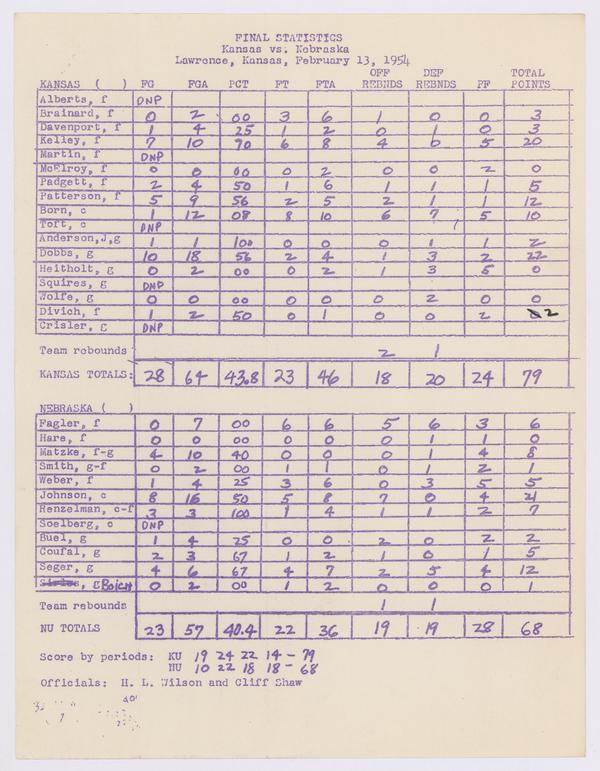 FINAL STATISTICS
Kansas vs. Nebraska
Lawrence, Kansas, February 13, 1954
OFF DEF TOTAL
KANSAS ( ) FG FGA PCT FT FTA REBNDS REBNDS PF POINTS
Alberts, f DNP
Brainard, f 0 2 00 3 6 1 0 0 3
Davenport, f 1 4 25 1 2 0 1 0 3
Kelley, f 7 10 70 6 8 4 6 5 20
Martin, f DNP
McElroy, f 0 0 00 0 2 0 0 2 0
Padgett, f 2 4 50 1 6 1 1 1 5
Patterson, f 5 9 56 2 5 2 1 1 12
Born, c 1 12 08 8 10 6 7 5 10
Toft, c DNP
Anderson,J,g 1 1 100 0 0 0 1 1 2
Dobbs, g 10 18 56 2 4 1 3 2 22
Heitholt, g 0 2 00 0 2 1 3 5 0
Squires, g DNP
Wolfe, g 0 0 00 0 0 0 2 0 0
Divich, f 1 2 50 0 1 0 0 2 2
Crisler, g DNP
Team rebounds 2 1
KANSAS TOTALS: 28 64 43.8 23 46 18 20 24 79
NEBRASKA ( )
Fagler, f 0 7 00 6 6 5 6 3 6
Hare, f 0 0 00 0 0 0 1 1 0
Matzke, f-g 4 10 40 0 0 0 1 4 8
Smith, g-f 0 2 00 1 1 0 1 2 1
Weber, f 1 4 25 3 6 0 3 5 5
Johnson, c 8 16 50 5 8 7 0 4 21
Renzelman, c-f 3 3 100 1 4 1 1 2 7
Soelberg, c DNP
Buel, g 1 4 25 0 0 2 0 2 2
Coufal, g 2 3 67 1 2 1 0 1 5
Seger, g 4 6 67 4 7 2 5 4 12
, g Boich 0 2 00 1 2 0 0 0 1
Team rebounds 1 1
NU TOTALS 23 57 40.4 22 36 19 19 28 68
Score by periods: KU 19 24 22 14 - 79
NU 10 22 18 18 - 68
Officials: H. L. Wilson and Cliff Shaw